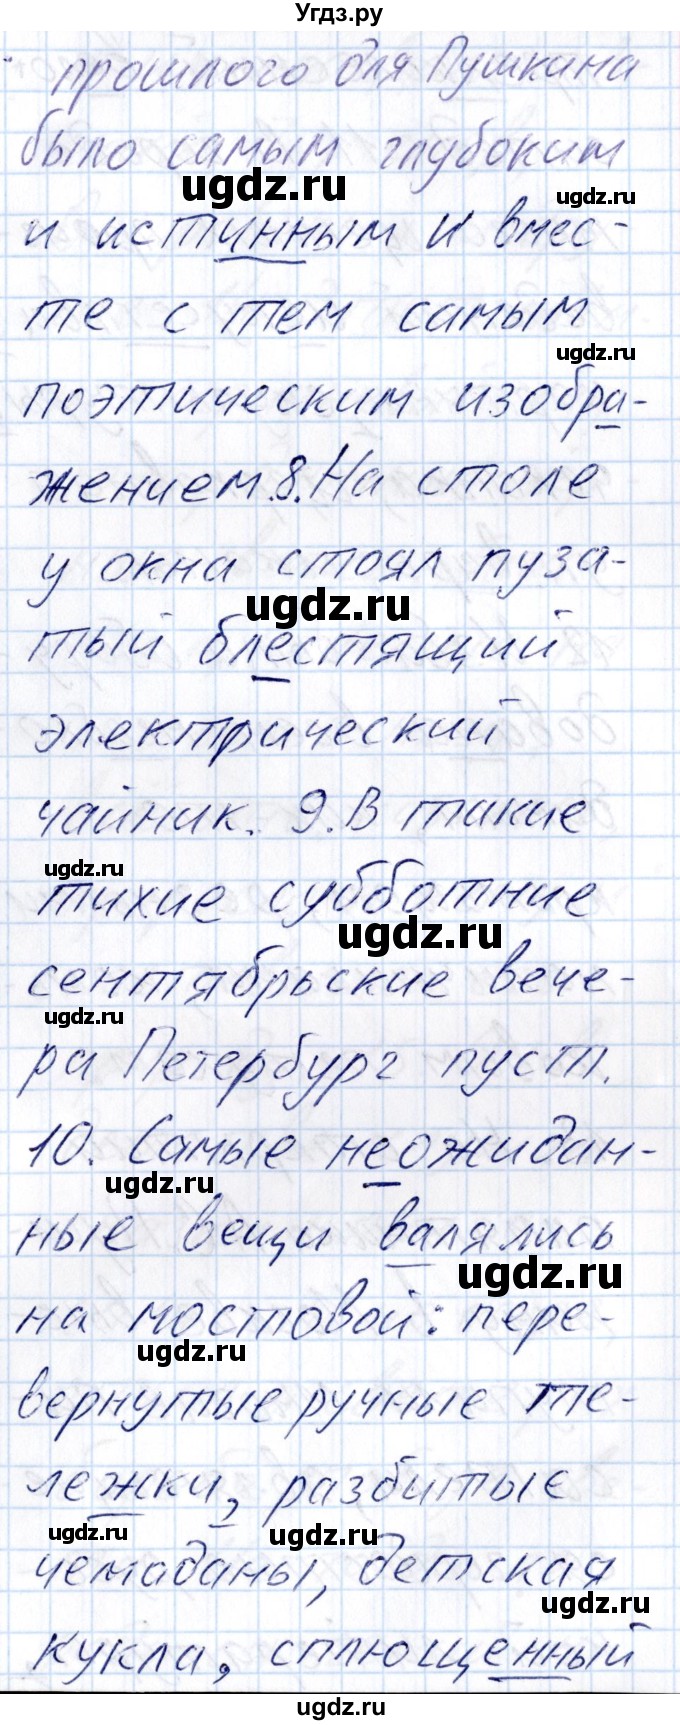 Угдз.ру
прошлого для Пушкина
было самым глубоким
ugdz.ru
ugdz.ru
и истинным и вмес-
те с тем самым
ugdz.ru
поэтическим изобра-
жением. 8. На столе
у окна стоял пуза-
ugdz.ru
тый блестящий
электрический
чайник. 9. В такие
ugdz.ru
тихие субботние
ugdz.ru
сентябрьские вече-
ugdz.ru
ра Петербург пуст.
10. Самые неожидан-
ugdz.ru
ные вещи валялись
ugdz.ru
на мостовой: пере-
ugdz.ru
вернутые ручные те-
лежки, разбитые
ugdz.ru
ugdz.ru
чемаданы, детская
ugdz.ru
кукла, сплющенный
ugdz.ru